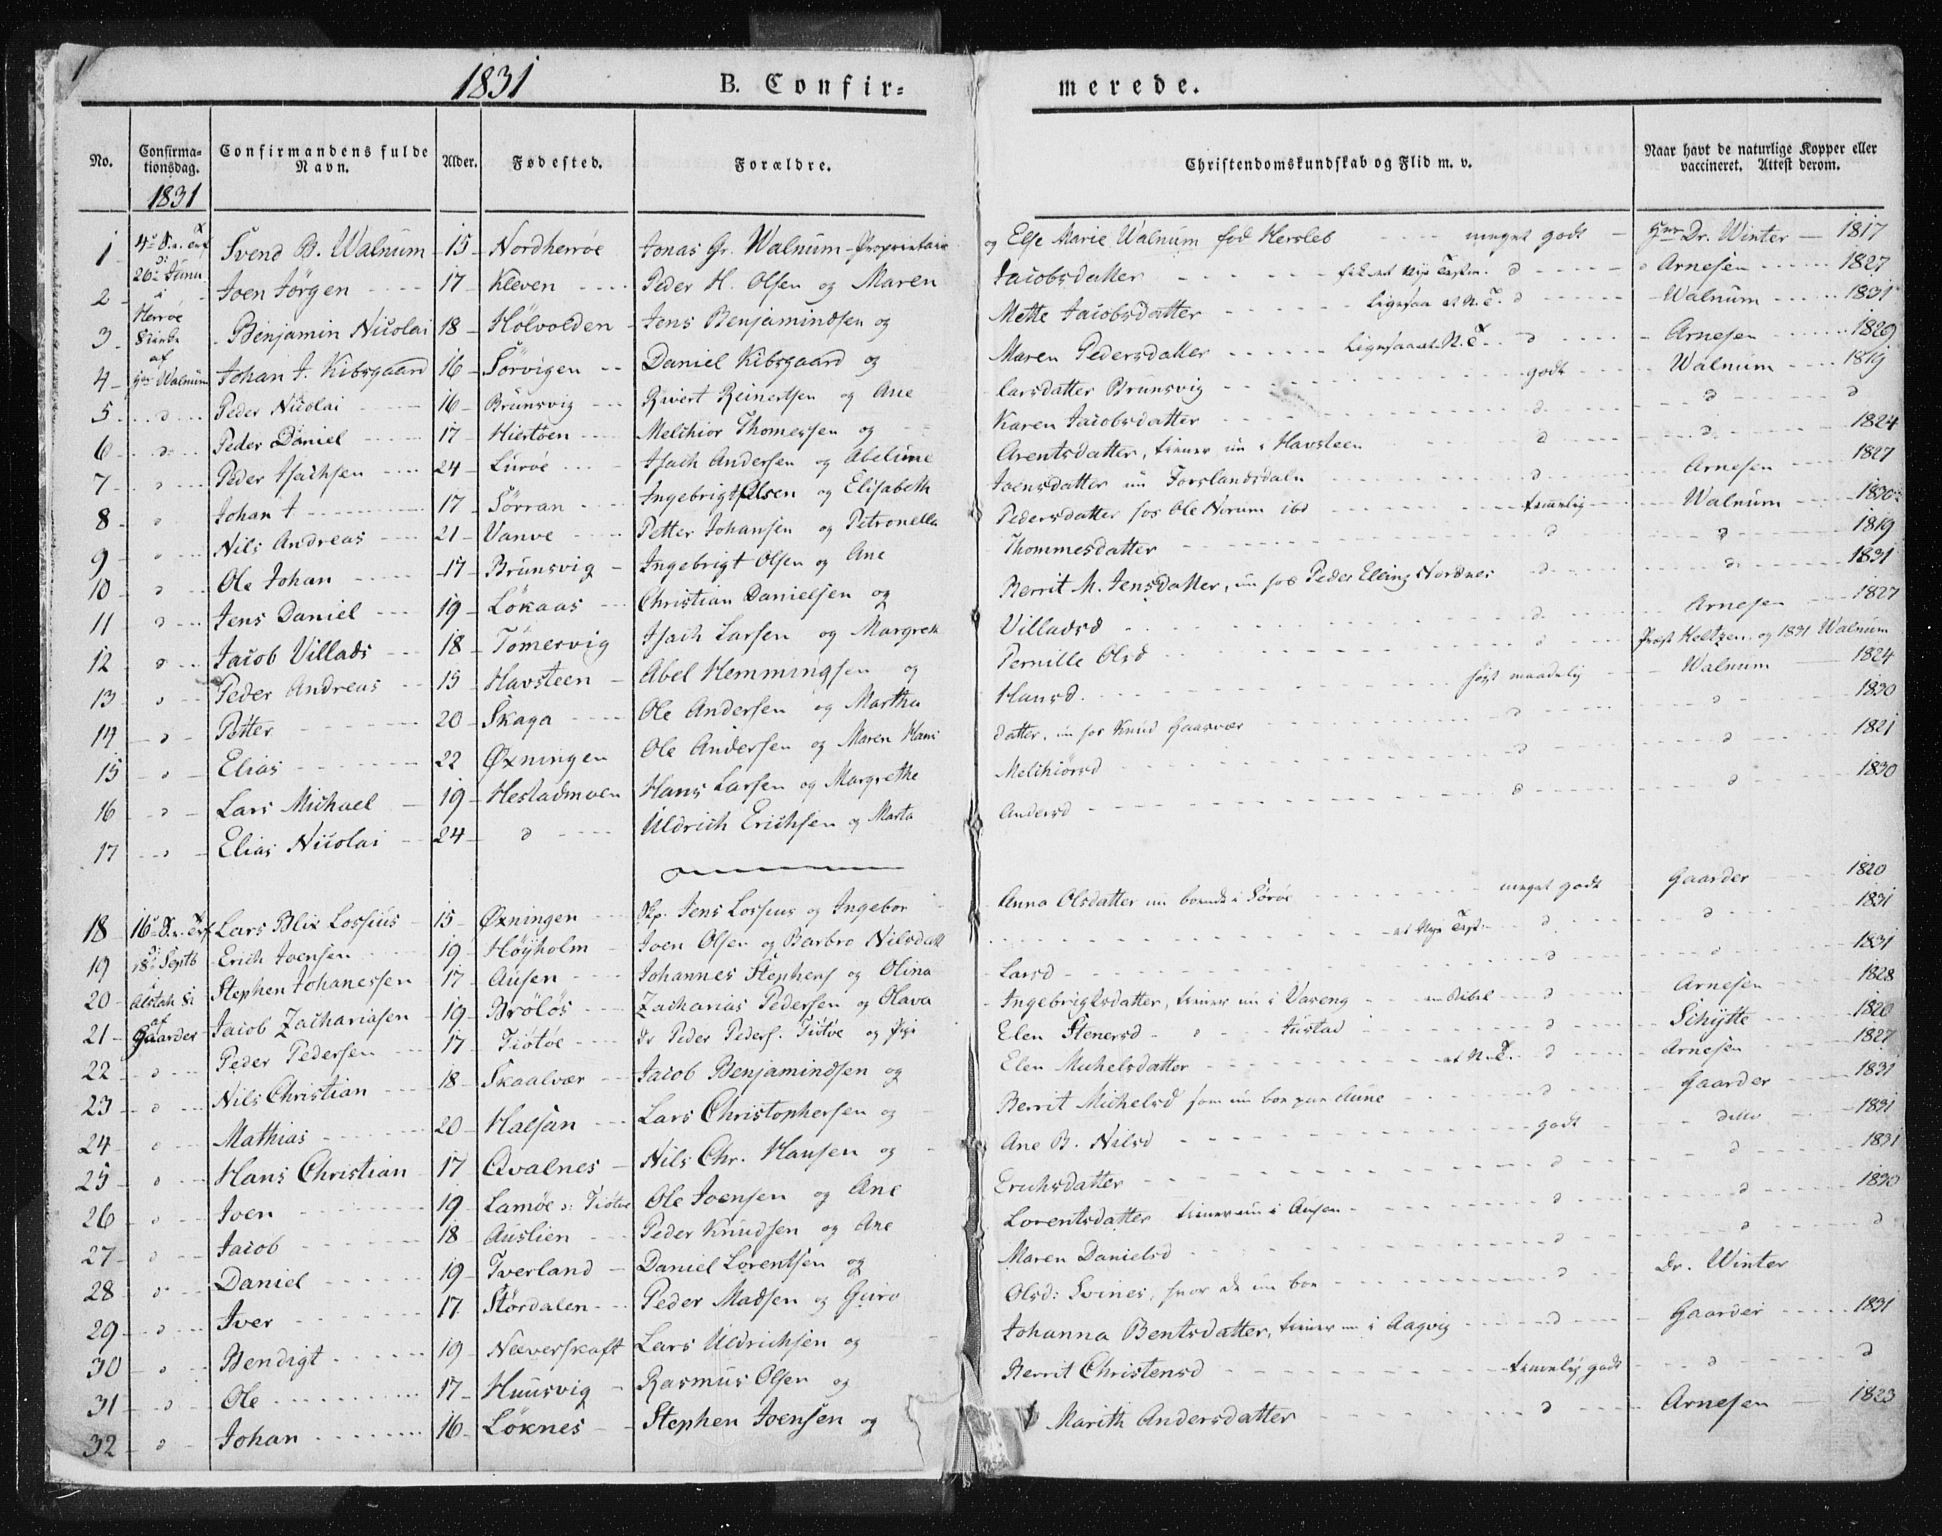 1
1831 B. Confir= merede.
No. Confirma-tionsdag. Confirmandens fulde Navn. Alder. Fødested. Forældre. Christendomskundskab og Flid m. v. Naar havt de naturlige Kopper eller vaccineret. Attest derom.
1831
1 Svend B. Walnum 15 Nordherröe Jonas Gr. Walnum Proprietair og Else Marie Walnum fød Hersleb meget godt Dr. Winter 1817
26 Juni
2 Joen Jörgen 17 Kleven Peder H. Olsen og Maren Jacobsdatter d Arnesen 1827
Herröe
3 Benjamin Nicolai 18 Hölvolden Jens Benjamindsen og Mette Jacobsdatter Ligesaa et N. T. d Walnum 1831
af
4 Walnum Johan J. Kibsgaard 16 Sörvigen Daniel Kibsgaard og Maren Pedersdatter Ligesaa et N. T. d Arnesen 1829
5 d Peder Nicolai 16 Brunsvig Rivert Reinertsen og Ane Larsdatter Brunsvig godt Walnum 1819
6 d Peder Daniel 17 Hiertöen Melchior Thomessen og Karen Jacobsdatter d d d
7 d Peder Isachsen 24 Luröe Isach Andersen og Abelune Arentsdatter, tiener nu i Havsteen d d 1824
8 d Johan J 17 Sörran Ingebrigt Olsen og Elisabeth Joensdatter nu Forslandsdaln d Arnesen 1827
9 d Nils Andreas 21 Vanve Petter Johansen og Petronella Pedersdatter hos Ole Norum ibd temmelig Walnum 1830
10 d Ole Johan 17 Brunsvig Ingebrigt Olsen og Ane Thommesdatter d d 1819
11 d Jens Daniel 19 Lökaas Christian Danielsen og Berrit M. Jensdatter, nu hos Peder Elling Nordnes d d 1831
12 d Jacob Villads 18 Tömervig Isach Larsen og Margreth Villadsd d Arnesen 1827
13 d Peder Andreas 15 Havsteen Abel Hemmingsen og Pernille Olsd d Provst Heltzen og 1831 Walnum
14 d Petter 20 Skaga Ole Andersen og Martha Hansd. høist maadelig Walnum 1824
15 d Elias 22 Öxningen Ole Andersen og Maren Hansdatter, nu hos Knud Gaasvær d d 1830
16 d Lars Michael 19 Hestadmoen Hans Larsen og Margrethe Melchiörsd d d 1821
17 d Elias Nicolai 24 d Uldrich Erichsen og Marta Andersd d d 1830
18 Lars Blix Lossius 15 Öxningen Jens Lossius og Ingebor Anna Olsdatter nu boende i Söröe meget godt Gaarder 1820
19 18 Septb Erich Joensen 19 Höyholm Joen Olsen og Barbro Nilsdatt et Nye Test d d 1831
20 Stephen Johanessen 17 Ausen Johannes Stephens og Olina Larsd d d 1831
af
21 Gaarder Jacob Zachariasen 19 Brölös Zacharias Pedersen og Olava Ingebrigtsdatter, tiener nu i Vareng en Bibel d Arnesen 1828
22 d Peder Pedersen 17 Tiötöe Peder Peders. Tiötöe og Elen Stenersd d Schytte 1820
23 d Nils Christian 18 Skaalvær Jacob Benjamindsen og Elen Michelsdatter et N. T. d Arnesen 1827
24 d Mathias 20 Halsan Lars Christophersen og Berrit Michelsd som nu boe paa Aune d Gaarder 1831
25 d Hans Christian 17 Qvalnes Nils Chr. Hansen og Ane B. Nilsd godt ditto 1831
26 d Iven 19 Lamöe Tiötöe Ole Ivensen og Ane Erichsdatter d d 1831
27 d Jacob 18 Auslien Peder Knudsen og Ane Lorentsdatter tiener nu i Ausen d d 1830
28 d Daniel 19 Tverland Daniel Lorentsen og Maren Danielsd d d d
29 d Iver 17 Stördalen Peder Madsen og Guro Olsd: Svines, hvor de nu boe d Dr. Winter
30 d Bendigt 19 Næverskaft Lars Uldrichsen og Johanna Bentsdatter, tiener nu i Aagvig d Gaarder 1831
31 d Ole 17 Huusvig Rasmus Olsen og Berrit Christensd temmelig godt d d
32 d Johan 16 Löknes Stephen Joensen og Marith Andersdatter d Arnesen 1823